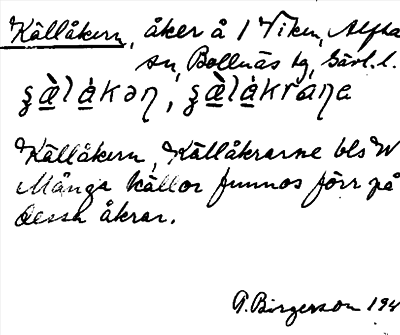 Källåkern, åker å 1 Viken, Alfta
sn, Bollnäs tg, Gävl. l.
Källåkern, Källåkrarne bls W
Många källor funnos förr på
dessa åkrar.
P. Birgerson 194